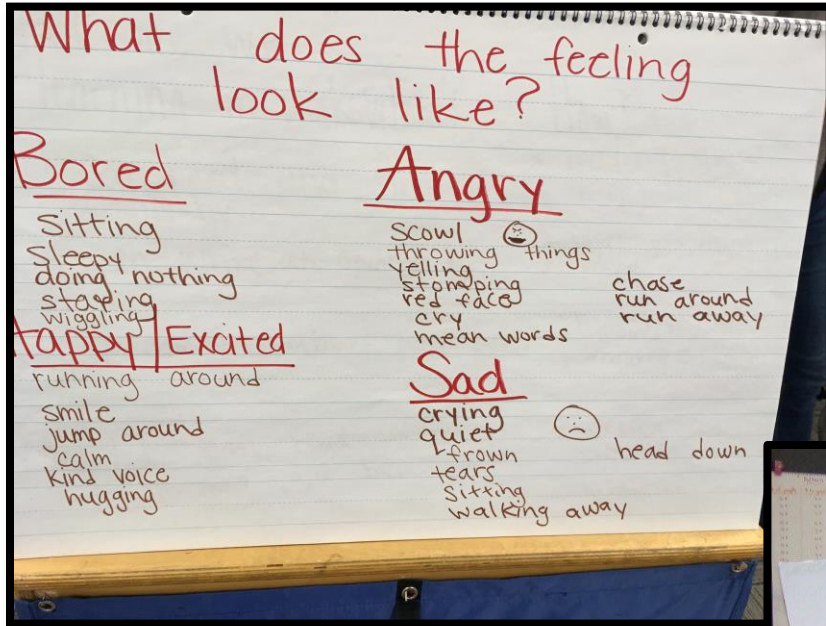 What does the feeling
look like?
Bored
sitting
sleepy
doing nothing
staring
wiggling
Happy/Excited
running around
smile
jump around
calm
kind voice
hugging
Angry
scowl
throwing things
yelling
stomping
red face
cry
mean words
chase
run around
run away
Sad
crying
quiet
frown
tears
sitting
walking away
head down